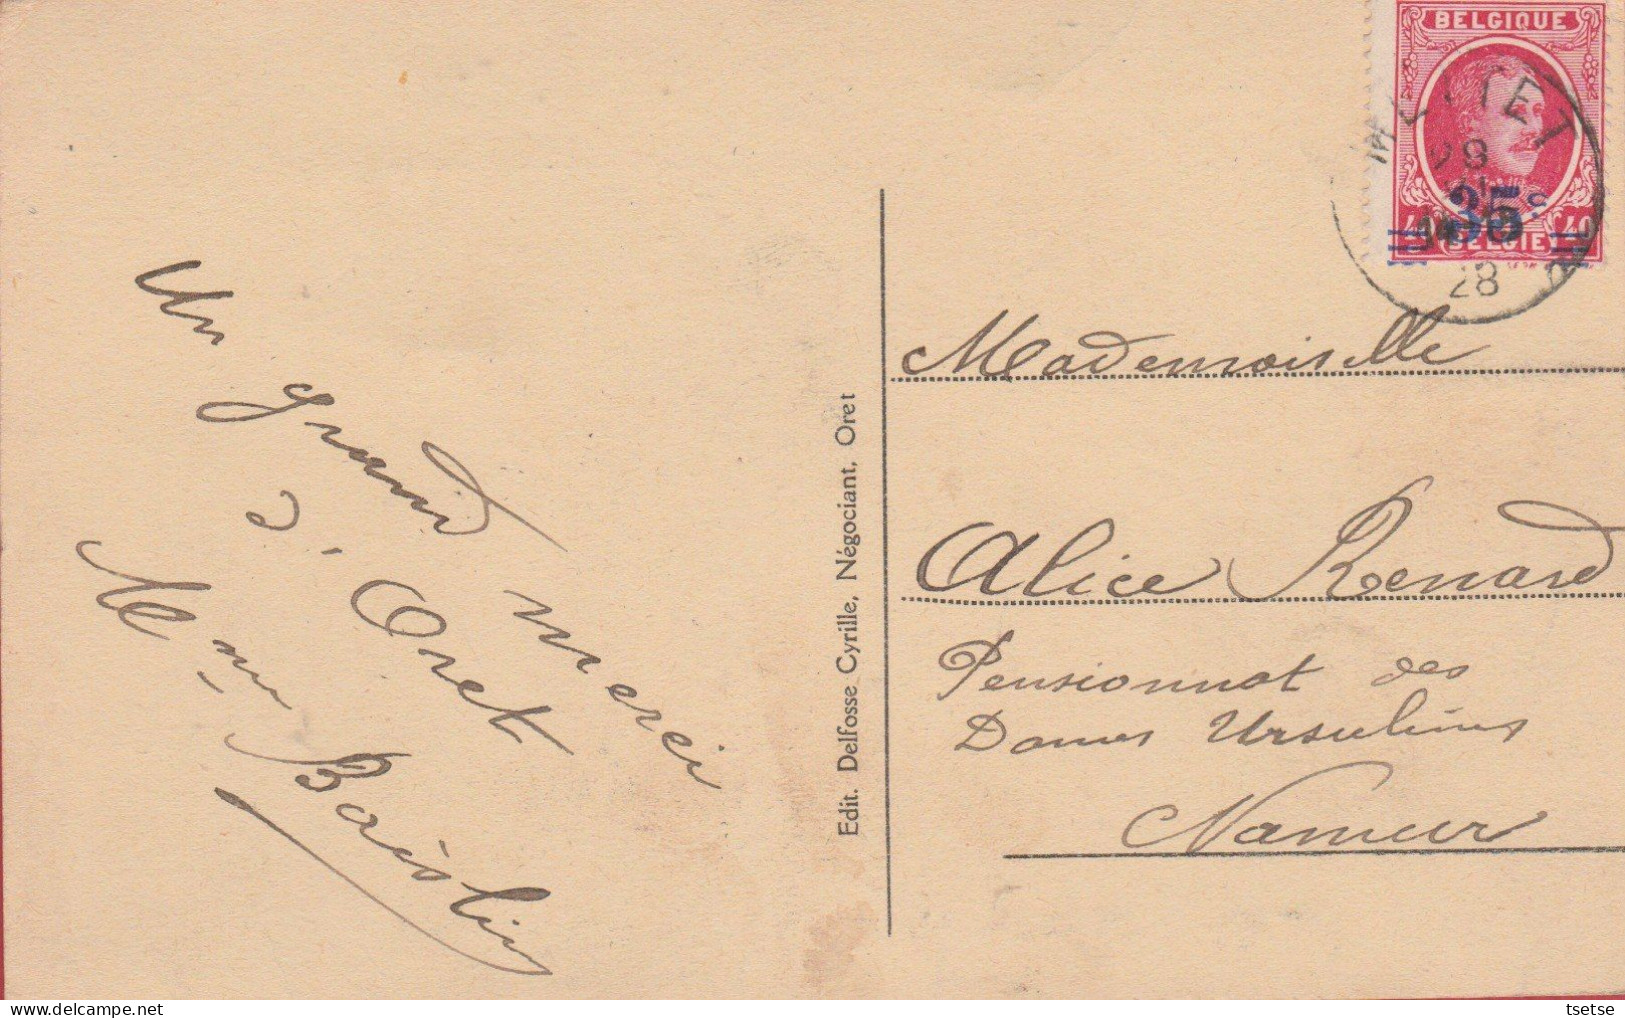 Un grand merci
d'Oret
Mme
Edit. Delfosse Cyrille, Négociant, Oret
BELGIQUE
35 c
BELGIE
40
METTET
28
14-15
28
Mademoiselle
Alice Renard
Pensionnat des
Dames Ursulines
Namur
tsetse